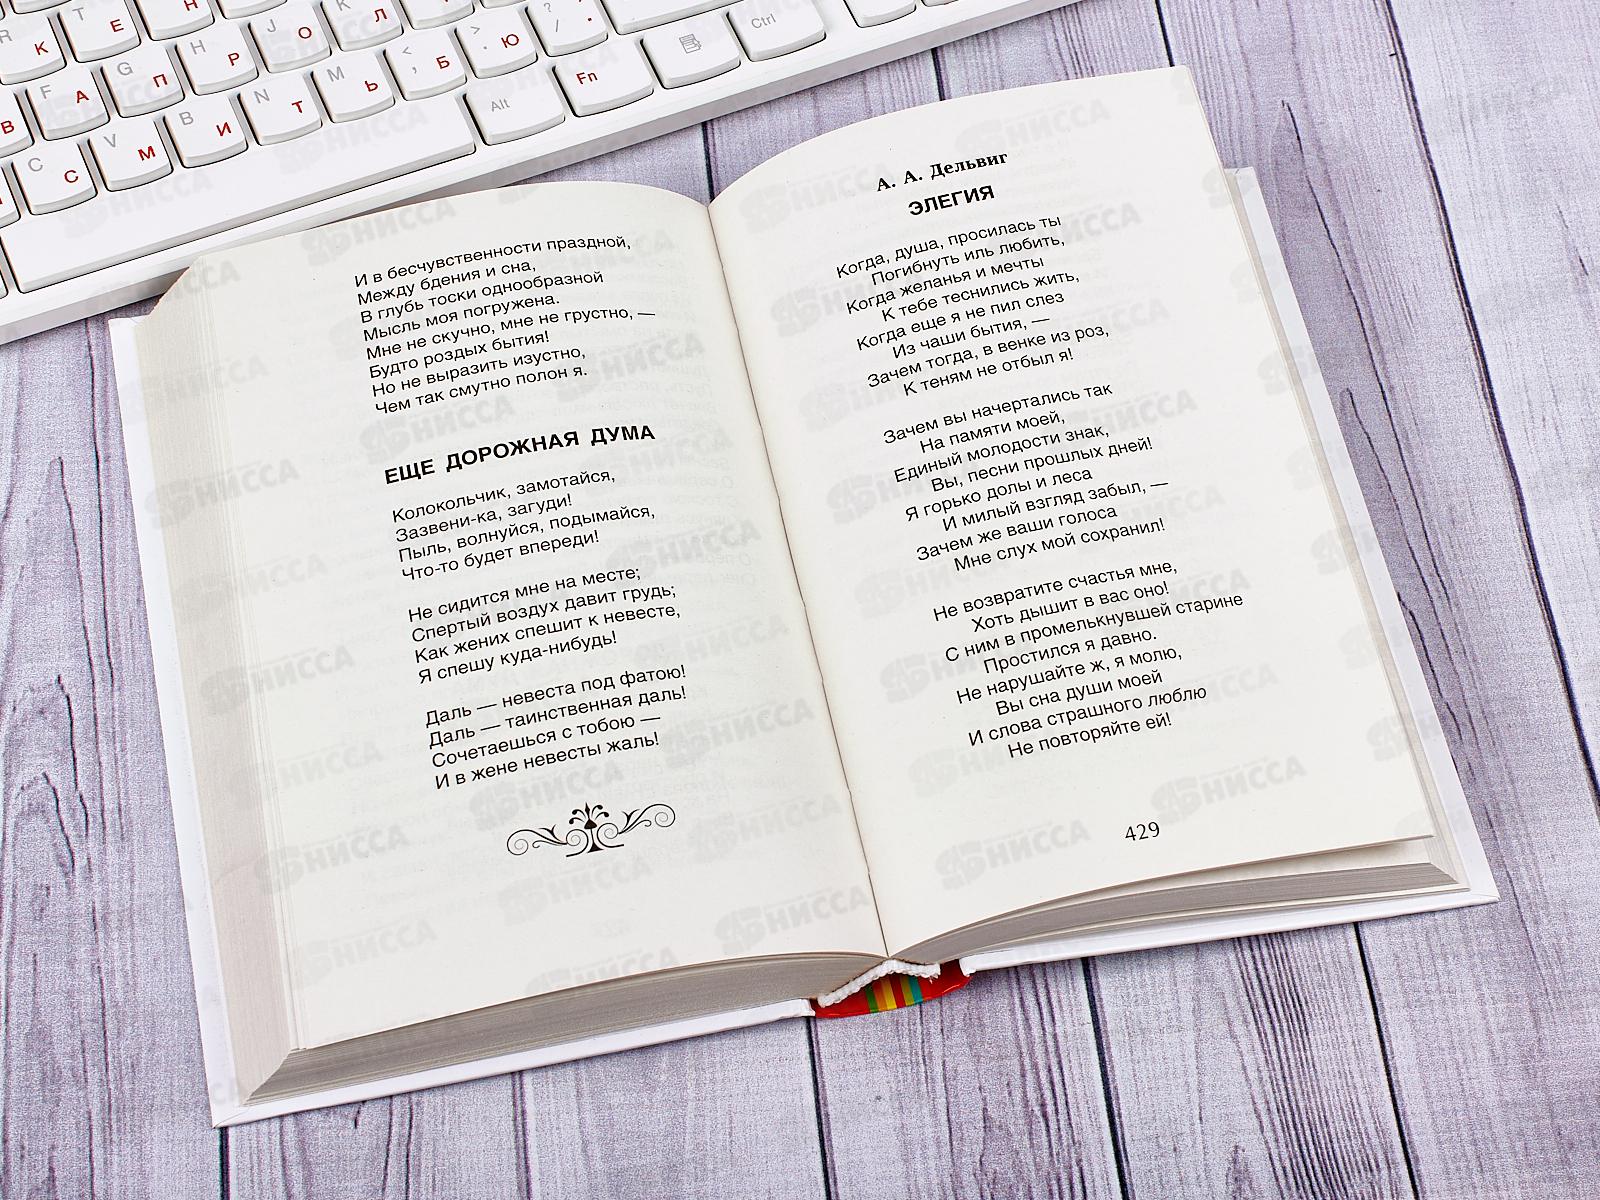 И в бесчувственности праздной,
Между бдения и сна,
В глубь тоски однообразной
Мысль моя погружена.
Мне не скучно, мне не грустно, —
Будто роздых бытия!
Но не выразить изустно,
Чем так смутно полон я.
ЕЩЕ ДОРОЖНАЯ ДУМА
Колокольчик, замотайся,
Зазвени-ка, загуди!
Пыль, волнуйся, подымайся,
Что-то будет впереди!
Не сидится мне на месте;
Спертый воздух давит грудь;
Как жених спешит к невесте,
Я спешу куда-нибудь!
Даль — невеста под фатою!
Даль — таинственная даль!
Сочетаешься с тобою —
И в жене невесты жаль!
А. А. Дельвиг
ЭЛЕГИЯ
Когда, душа, просилась ты
Погибнуть иль любить,
Когда желанья и мечты
К тебе теснились жить,
Когда еще я не пил слез
Из чаши бытия, —
Зачем тогда, в венке из роз,
К теням не отбыл я!
Зачем вы начертались так
На памяти моей,
Единый молодости знак,
Вы, песни прошлых дней!
Я горько долы и леса
И милый взгляд забыл, —
Зачем же ваши голоса
Мне слух мой сохранил!
Не возвратите счастья мне,
Хоть дышит в вас оно!
С ним в промелькнувшей старине
Простился я давно.
Не нарушайте ж, я молю,
Вы сна души моей
И слова страшного люблю
Не повторяйте ей!
429
R К T Е Н
F А G П H Р J О К Л
В C С V М B И N Т M Ь < , Б > . Ю ? / .
Alt Fn Ctrl
НИССА